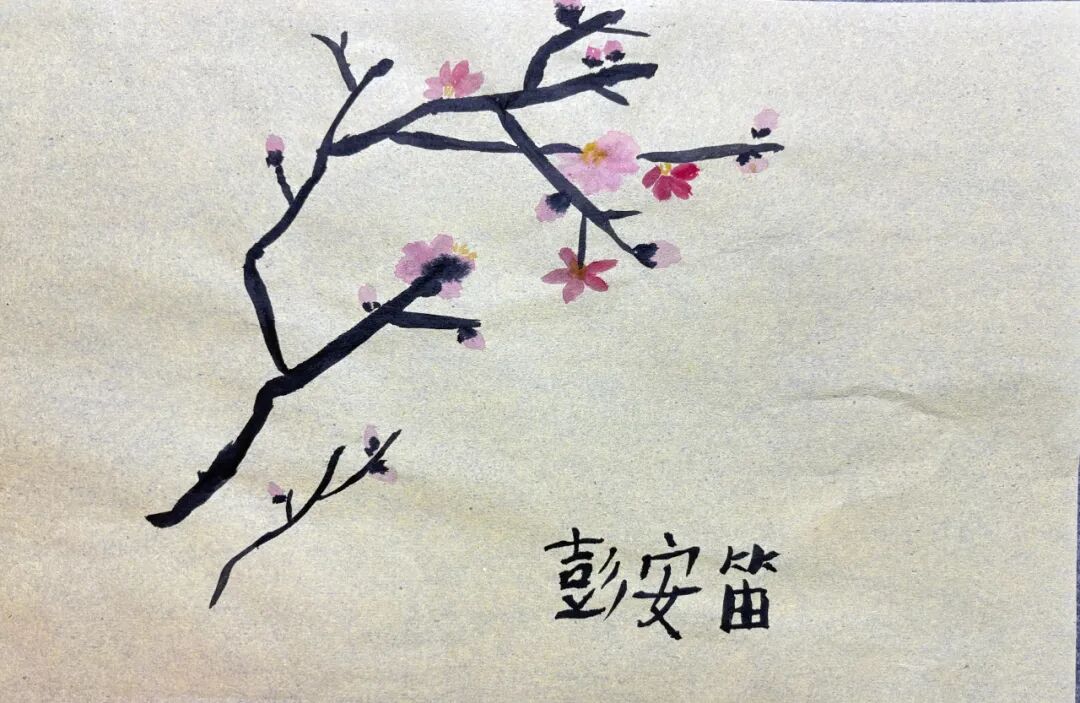 彭安笛